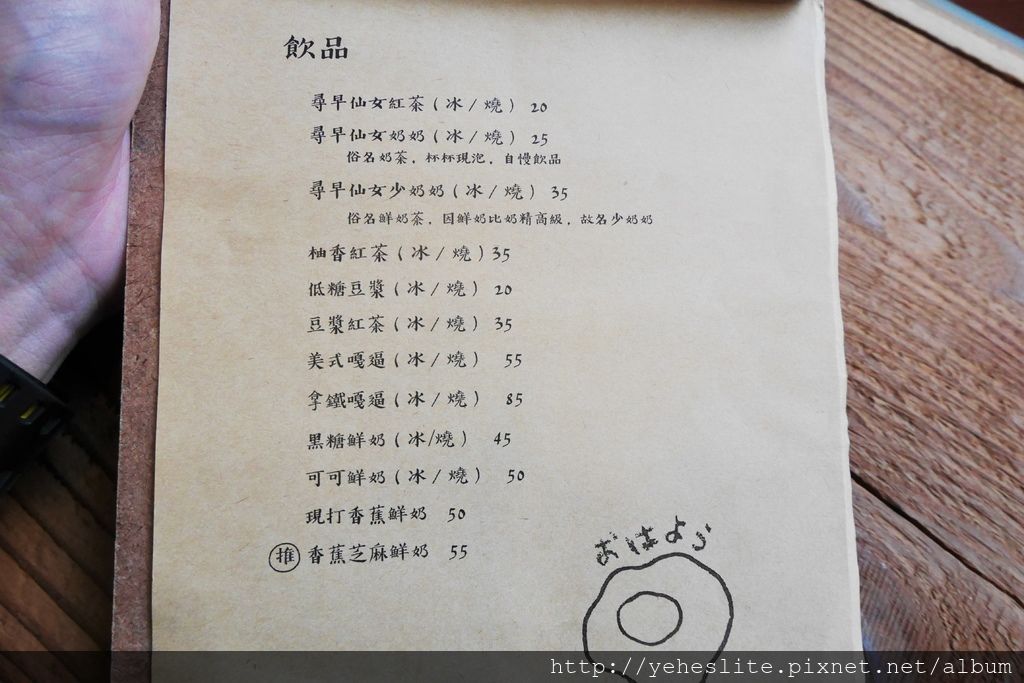 飲品
尋早仙女紅茶（冰/燒） 20
尋早仙女奶奶（冰/燒） 25
俗名奶茶，杯杯現泡，自慢飲品
尋早仙女少奶奶（冰/燒） 35
俗名鮮奶茶，因鮮奶比奶精高級，故名少奶奶
柚香紅茶（冰/燒）35
低糖豆漿（冰/燒） 20
豆漿紅茶（冰/燒） 35
美式嘎逼（冰/燒） 55
拿鐵嘎逼（冰/燒） 85
黑糖鮮奶（冰/燒） 45
可可鮮奶（冰/燒） 50
現打香蕉鮮奶 50
推 香蕉芝麻鮮奶 55
おはよう
http://yeheslite.pixnet.net/album